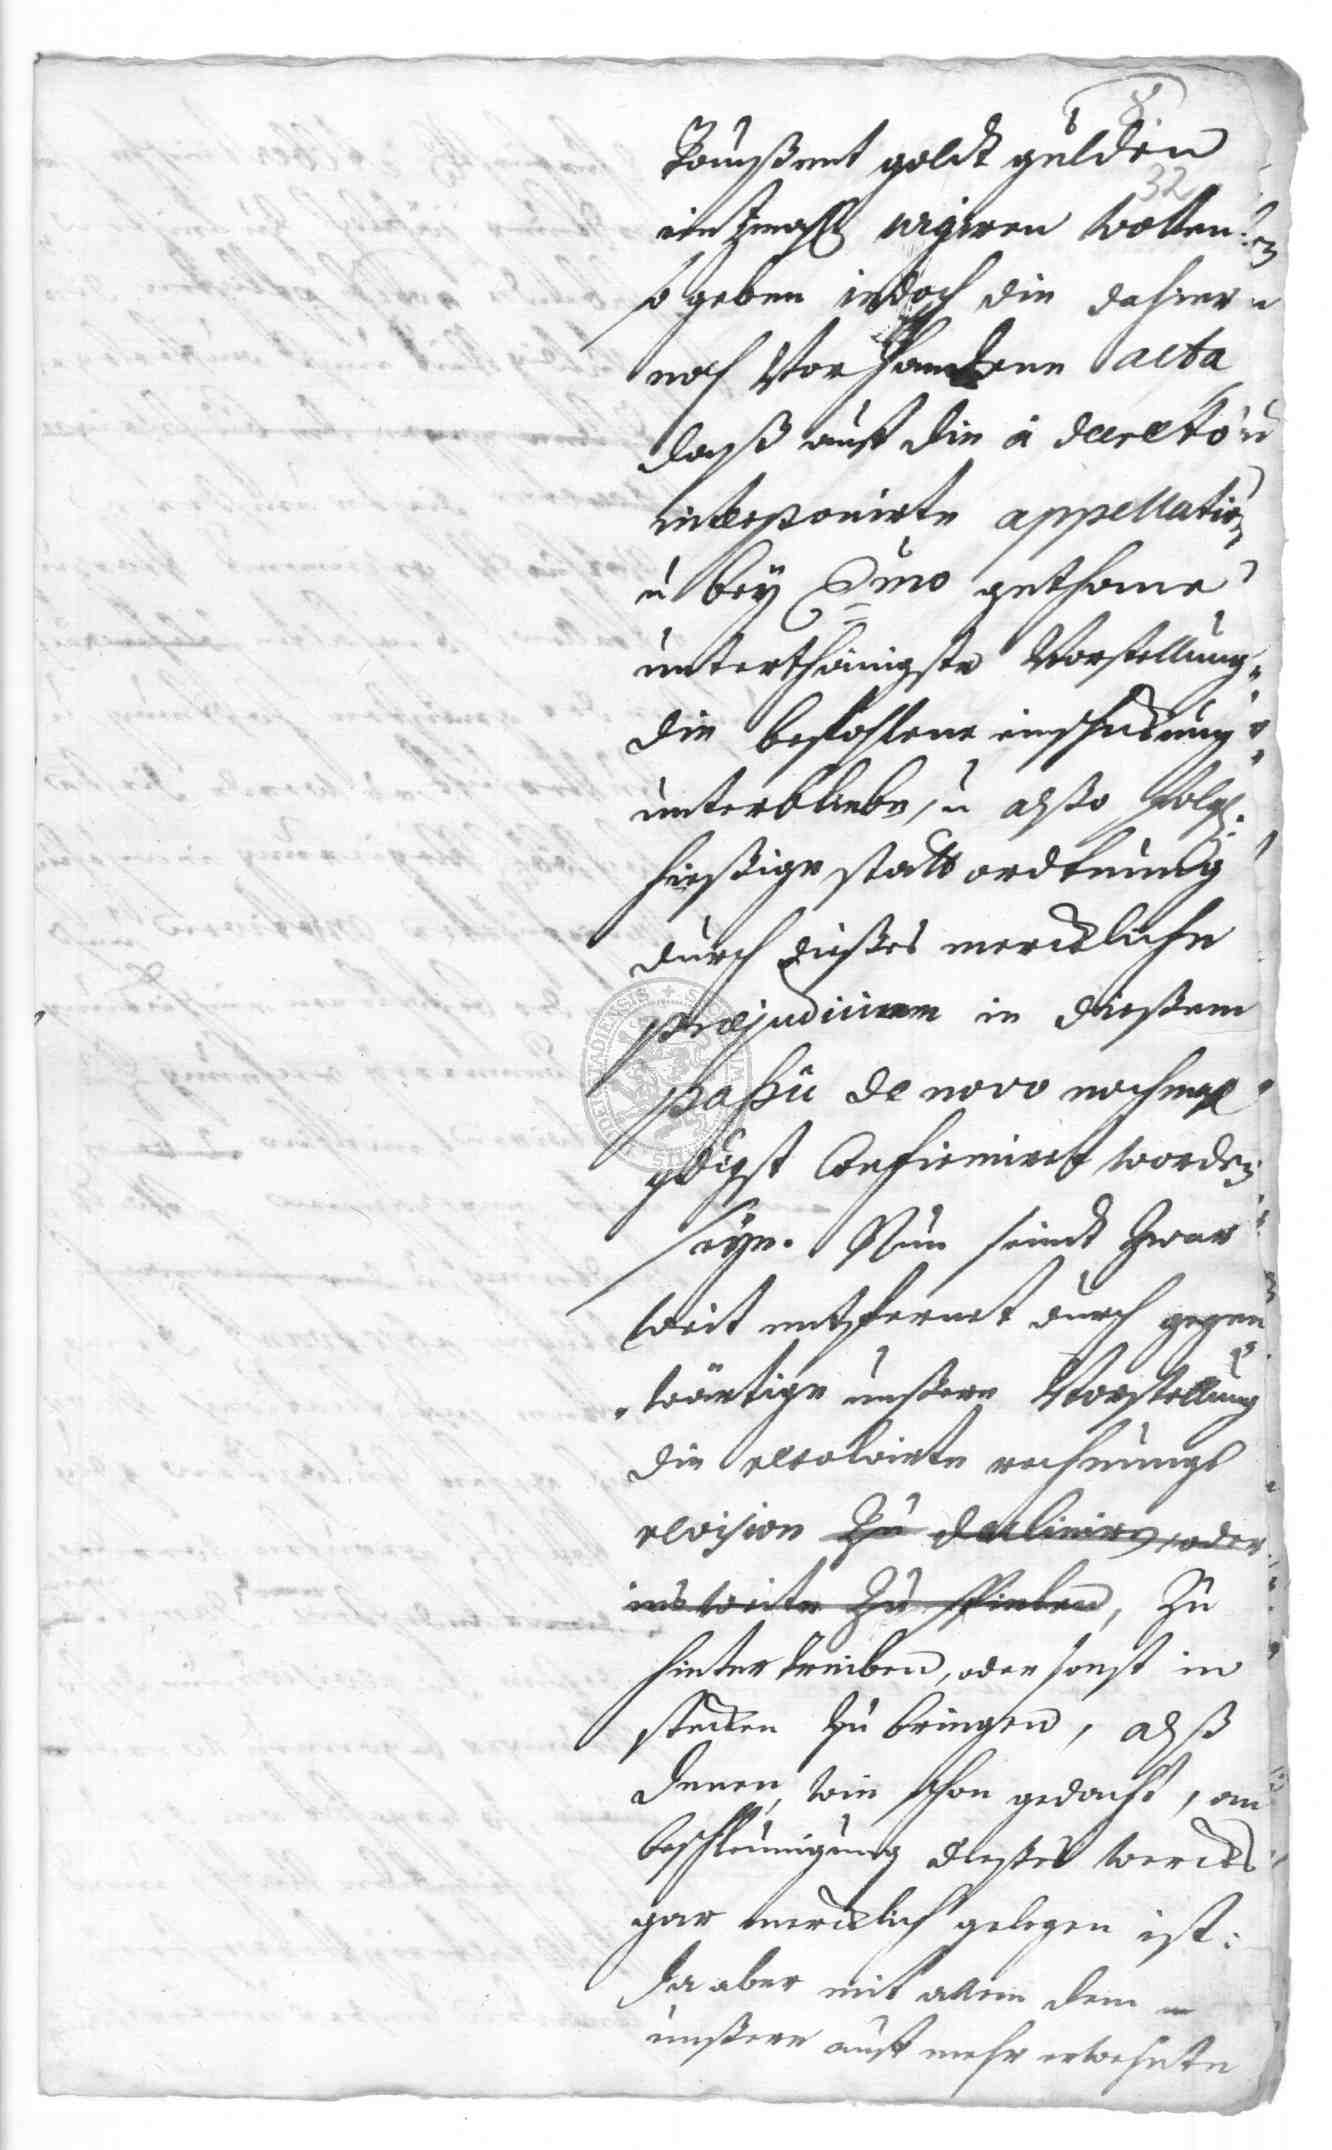 32
Taußent goldt gülden
einzmahl urgiren wolten
so geben iedoch die dahier
noch Vorhandene acta
daß auff die à decreto
interponirte appellation
u bey Smo gethane
unterthänigste Vorstellung
die befohlene einschickung
unterbliebe, u alßo
hießige statt ordtnung
durch dießes merckliche
præjudicium in dießem
passu de novo nochmahl
gdigst Confirmiret worden
seye. Nun seindt zwar
weit entfernet durch gegen
wärtige unßere Vorstellung
die resolvirte rechnungs
revision zu decliniren, oder
ins weite zu spielen, zu
hintertreiben, oder sonst in
stecken zu bringen, alß
denen, wie schon gedacht, an
beschleunigung dießes wercks
gar mercklich gelegen ist:
da aber mit allem dem
unßere auff mehr erwehnte